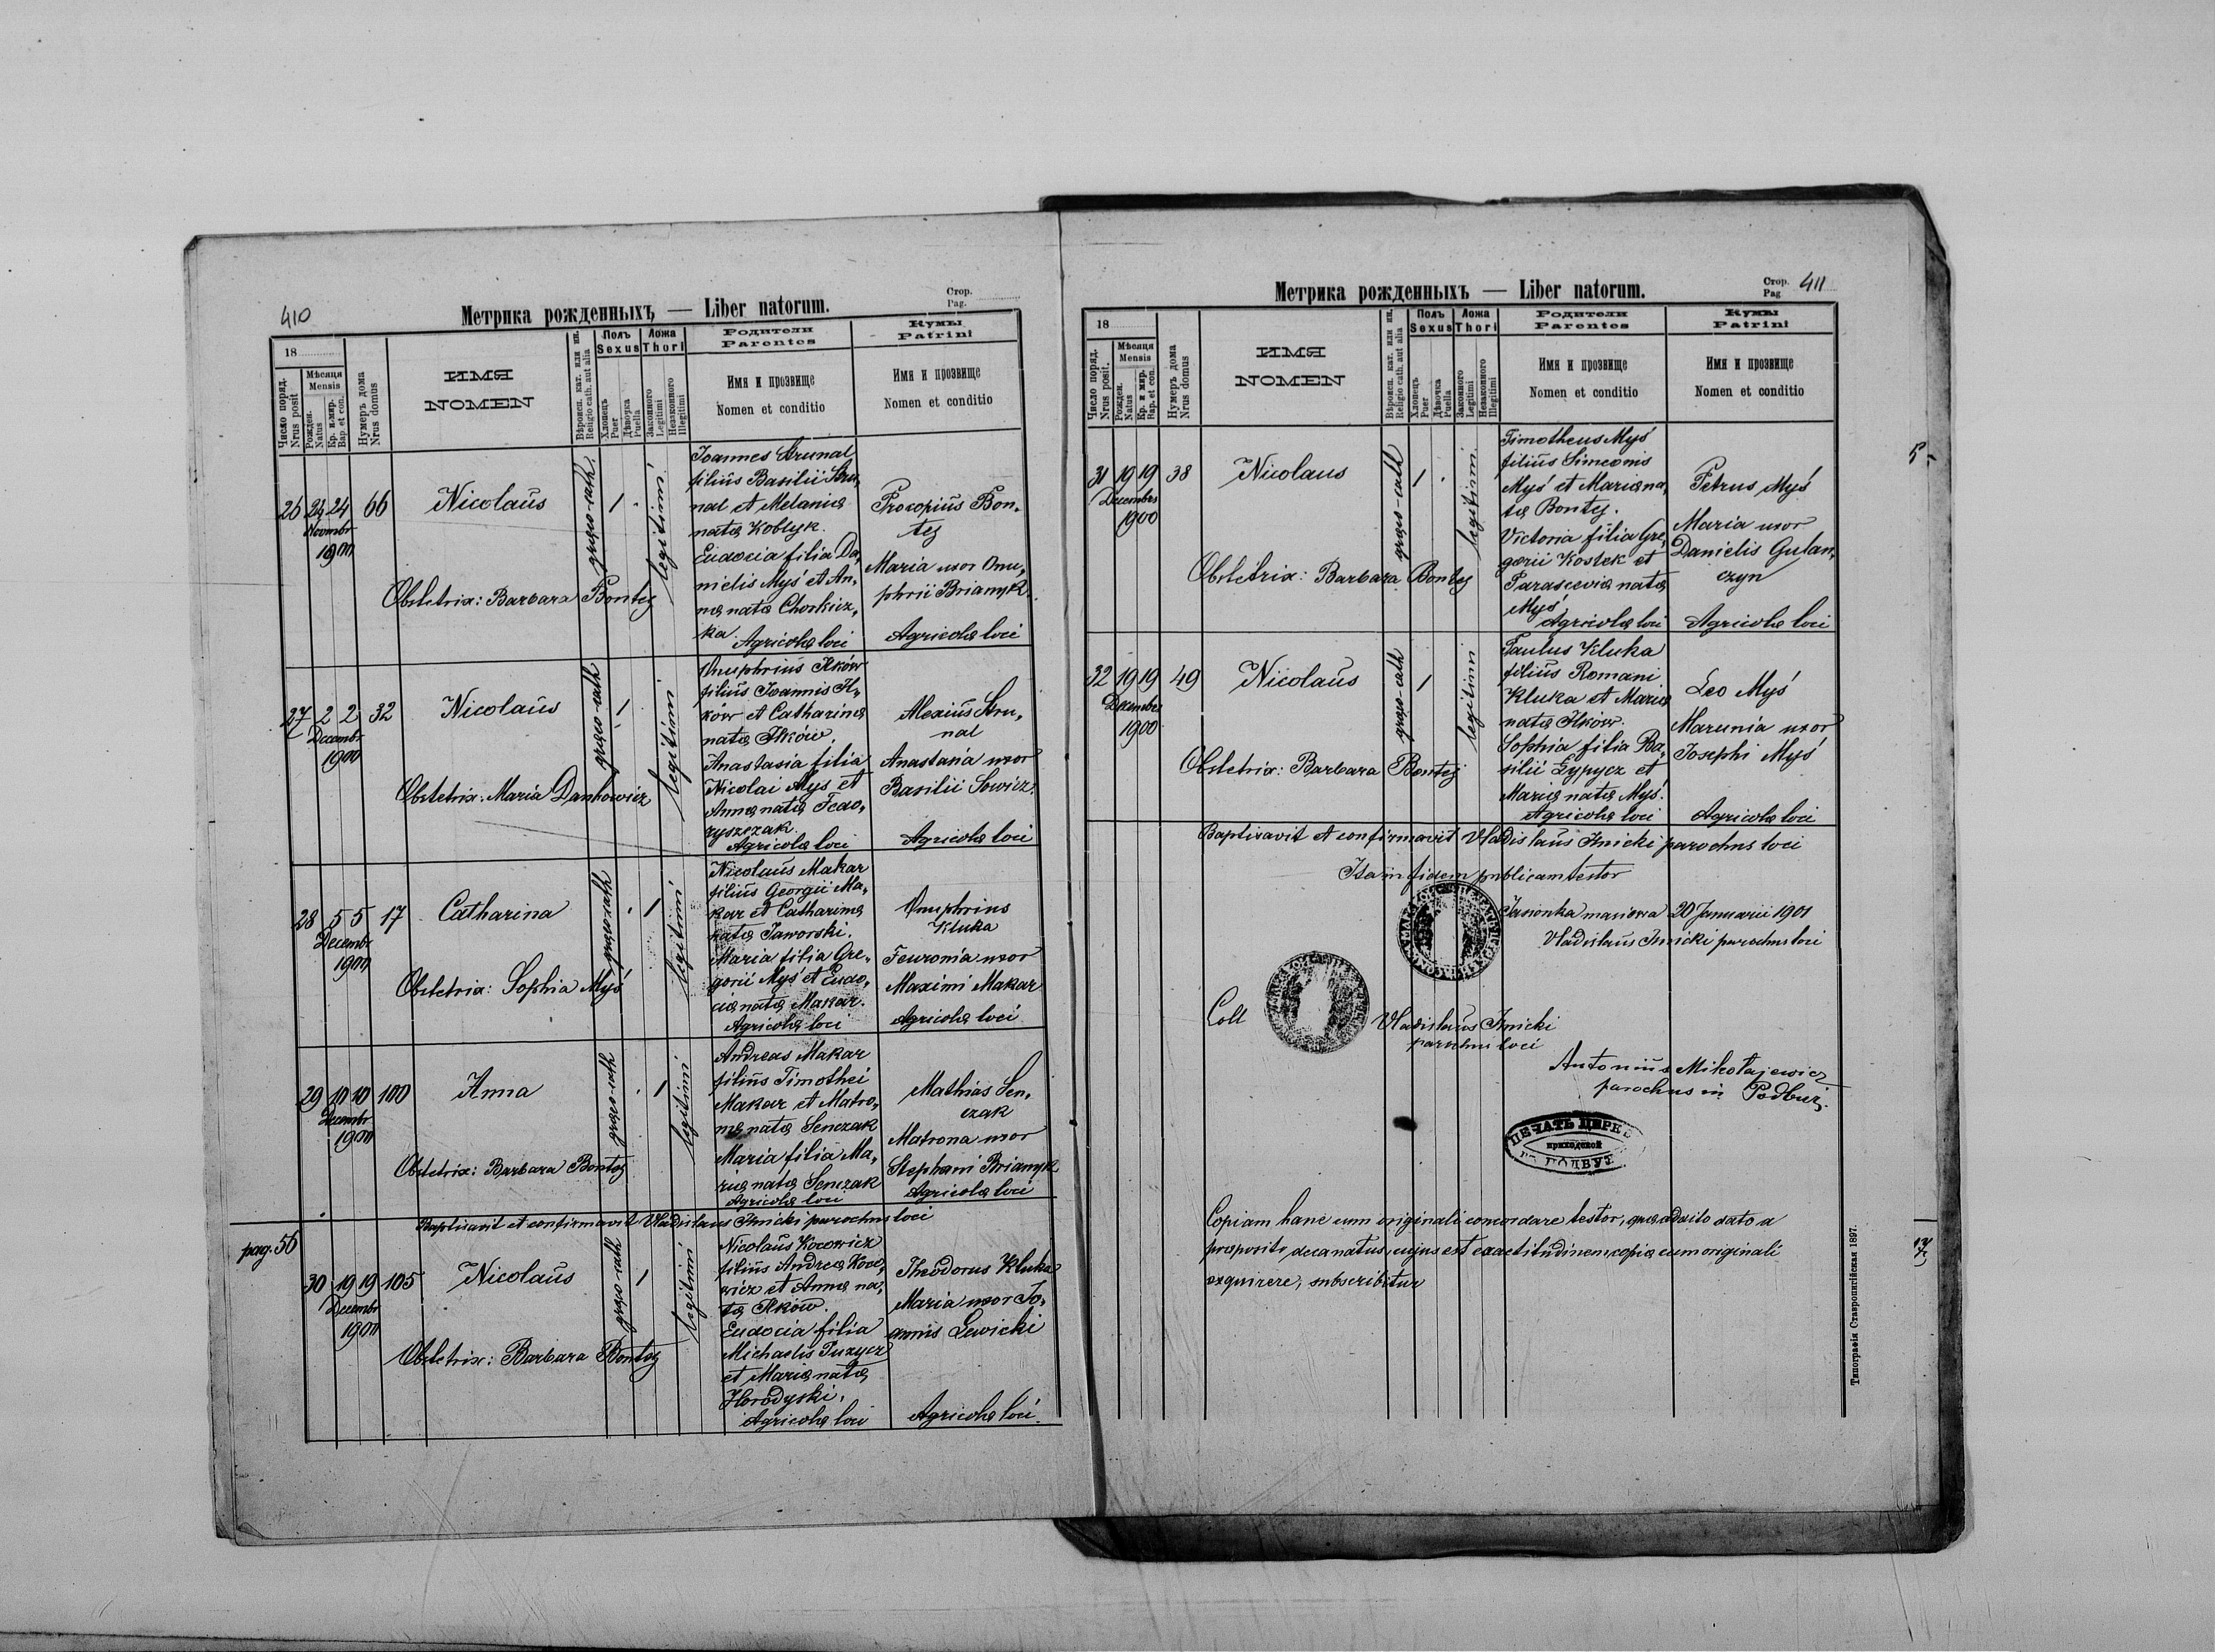 410
Метрика рожденныхъ — Liber natorum.
Стор.
Pag.
18
Число поряд.
Nrus posit
Мѣсяця
Mensis
Рожден.
Natus
Кр. и мир.
Bap. et con.
Нумеръ дома
Nrus domus
ИМЯ
NOMEN
Вѣроисп. кат. или ин.
Religio cath. aut alia
Полъ
Sexus
Хлопецъ
Puer
Дѣвочка
Puella
Ложа
Thori
Законного
Legitimi
Незаконного
Illegitimi
Родители
Parentes
Имя и прозвище
Nomen et conditio
Кумы
Patrini
Имя и прозвище
Nomen et conditio
26 24 66 Nicolaus
Novembr
1900
graeco-cath.
1 .
legitimi
Joannes Strunal
filius Basilii Stru,
nal et Melaniae
natae Koblyk.
Eudocia filia Da,
nielis Myś et An,
nae natae Chorkiez,
ka.
Agricolae loci
Procopius Bon,
tej
Maria uxor Onu,
phrii Brianyk.
Agricolae loci
Obstetrix: Barbara Bontej
27 2 2 32 Nicolaus
Decembr
1900
graeco-cath
1
legitimi
Onuphrius Ilków
filius Joannis Il,
ków et Catharinae
natae Ilków.
Anastasia filia
Nicolai Myś et
Annae natae Fedo,
ryszczak.
Agricolae loci
Alexius Stru,
nal
Anastasia uxor
Basilii Sowicz.
Agricolae loci
Obstetrix: Maria Dankowicz
28 5 5 17 Catharina
Decembr
1900
graeco-cath
. 1
legitimi
Nicolaus Makar
filius Georgii Ma,
kar et Catharinae
natae Jaworski.
Maria filia Gre,
gorii Myś et Eudo,
ciae natae Makar.
Agricolae loci
Onuphrius
Kluka
Feuronia uxor
Maximi Makar
Agricolae loci
Obstetrix: Sophia Myś
29 10 10 100 Anna
Decembr
1900
graeco-cath
. 1
legitimi
Andreas Makar
filius Timothei
Makar et Matro,
nae natae Senczak
Maria filia Ma,
riae natae Senczak
Agricolae loci
Mathias Sen,
czak
Matrona uxor
Stephani Brianyk
Agricolae loci
Obstetrix: Barbara Bontej
Baptisavit et confirmavit Vladislaus Ilnicki parochus loci
pag. 56
30 19 19 105 Nicolaus
Decembr
1900
graeco-cath
1
legitimi
Nicolaus Kocowicz
filius Andreae Koco,
wicz et Annae na,
tae Ilków.
Eudocia filia
Michaelis Puzycz
et Mariae natae
Horodyski.
Agricolae loci
Theodorus Kluka
Maria uxor Jo,
annis Lewicki
Agricolae loci
Obstetrix: Barbara Bontej
Метрика рожденныхъ — Liber natorum.
Стор.
Pag 411
18
Число поряд.
Nrus posit.
Мѣсяця
Mensis
Рожден.
Natus
Кр. и мир.
Bap. et con.
Нумеръ дома
Nrus domus
ИМЯ
NOMEN
Вѣроисп. кат. или ин.
Religio cath. aut alia
Полъ
Sexus
Хлопецъ
Puer
Дѣвочка
Puella
Ложа
Thori
Законного
Legitimi
Незаконного
Illegitimi
Родители
Parentes
Имя и прозвище
Nomen et conditio
Кумы
Patrini
Имя и прозвище
Nomen et conditio
31 19 19 38 Nicolaus
Decembr
1900
graeco-cath
1 .
legitimi
Timotheus Myś
filius Simeonis
Myś et Mariae na,
tae Bontej.
Victoria filia Gre,
gorii Kostek et
Parasceviae natae
Myś
Agricolae loci
Petrus Myś
Maria uxor
Danielis Gutan,
czyn
Agricolae loci
Obstetrix: Barbara Bontej
32 19 19 49 Nicolaus
Decembr
1900
graeco-cath
1
legitimi
Paulus Kluka
filius Romani
Kluka et Mariae
natae Ilków.
Sophia filia Ba,
silii Łypycz et
Mariae natae Myś.
Agricolae loci
Leo Myś
Marunia uxor
Josephi Myś
Agricolae loci
Obstetrix: Barbara Bontej
Baptisavit et confirmavit Vladislaus Ilnicki parochus loci
Ita in fidem publicam testor
Jasionka masiowa 20 Januarii 1901
Vladislaus Ilnicki parochus loci
Coll
Vladislaus Ilnicki
parochus loci
Antonius Mikołajewicz
parochus in Podbuż.
ПЕЧАТЬ ЦЕРК
приходской
ПОДБУ
Copiam hanc cum originali concordare testor,
praeposito decanatus, cujus est exactitudinem copiae cum originali
exquirere, subscribitur
Типографія Ставропигійская 1897.